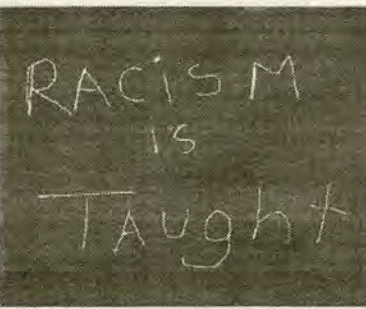 RACiSM
is
TAught